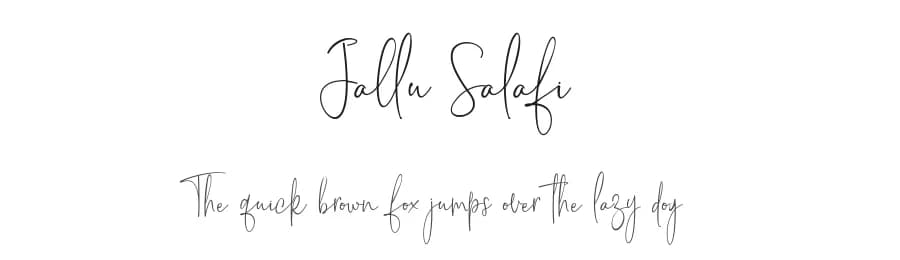 Jallu Salafi
The quick brown fox jumps over the lazy dog